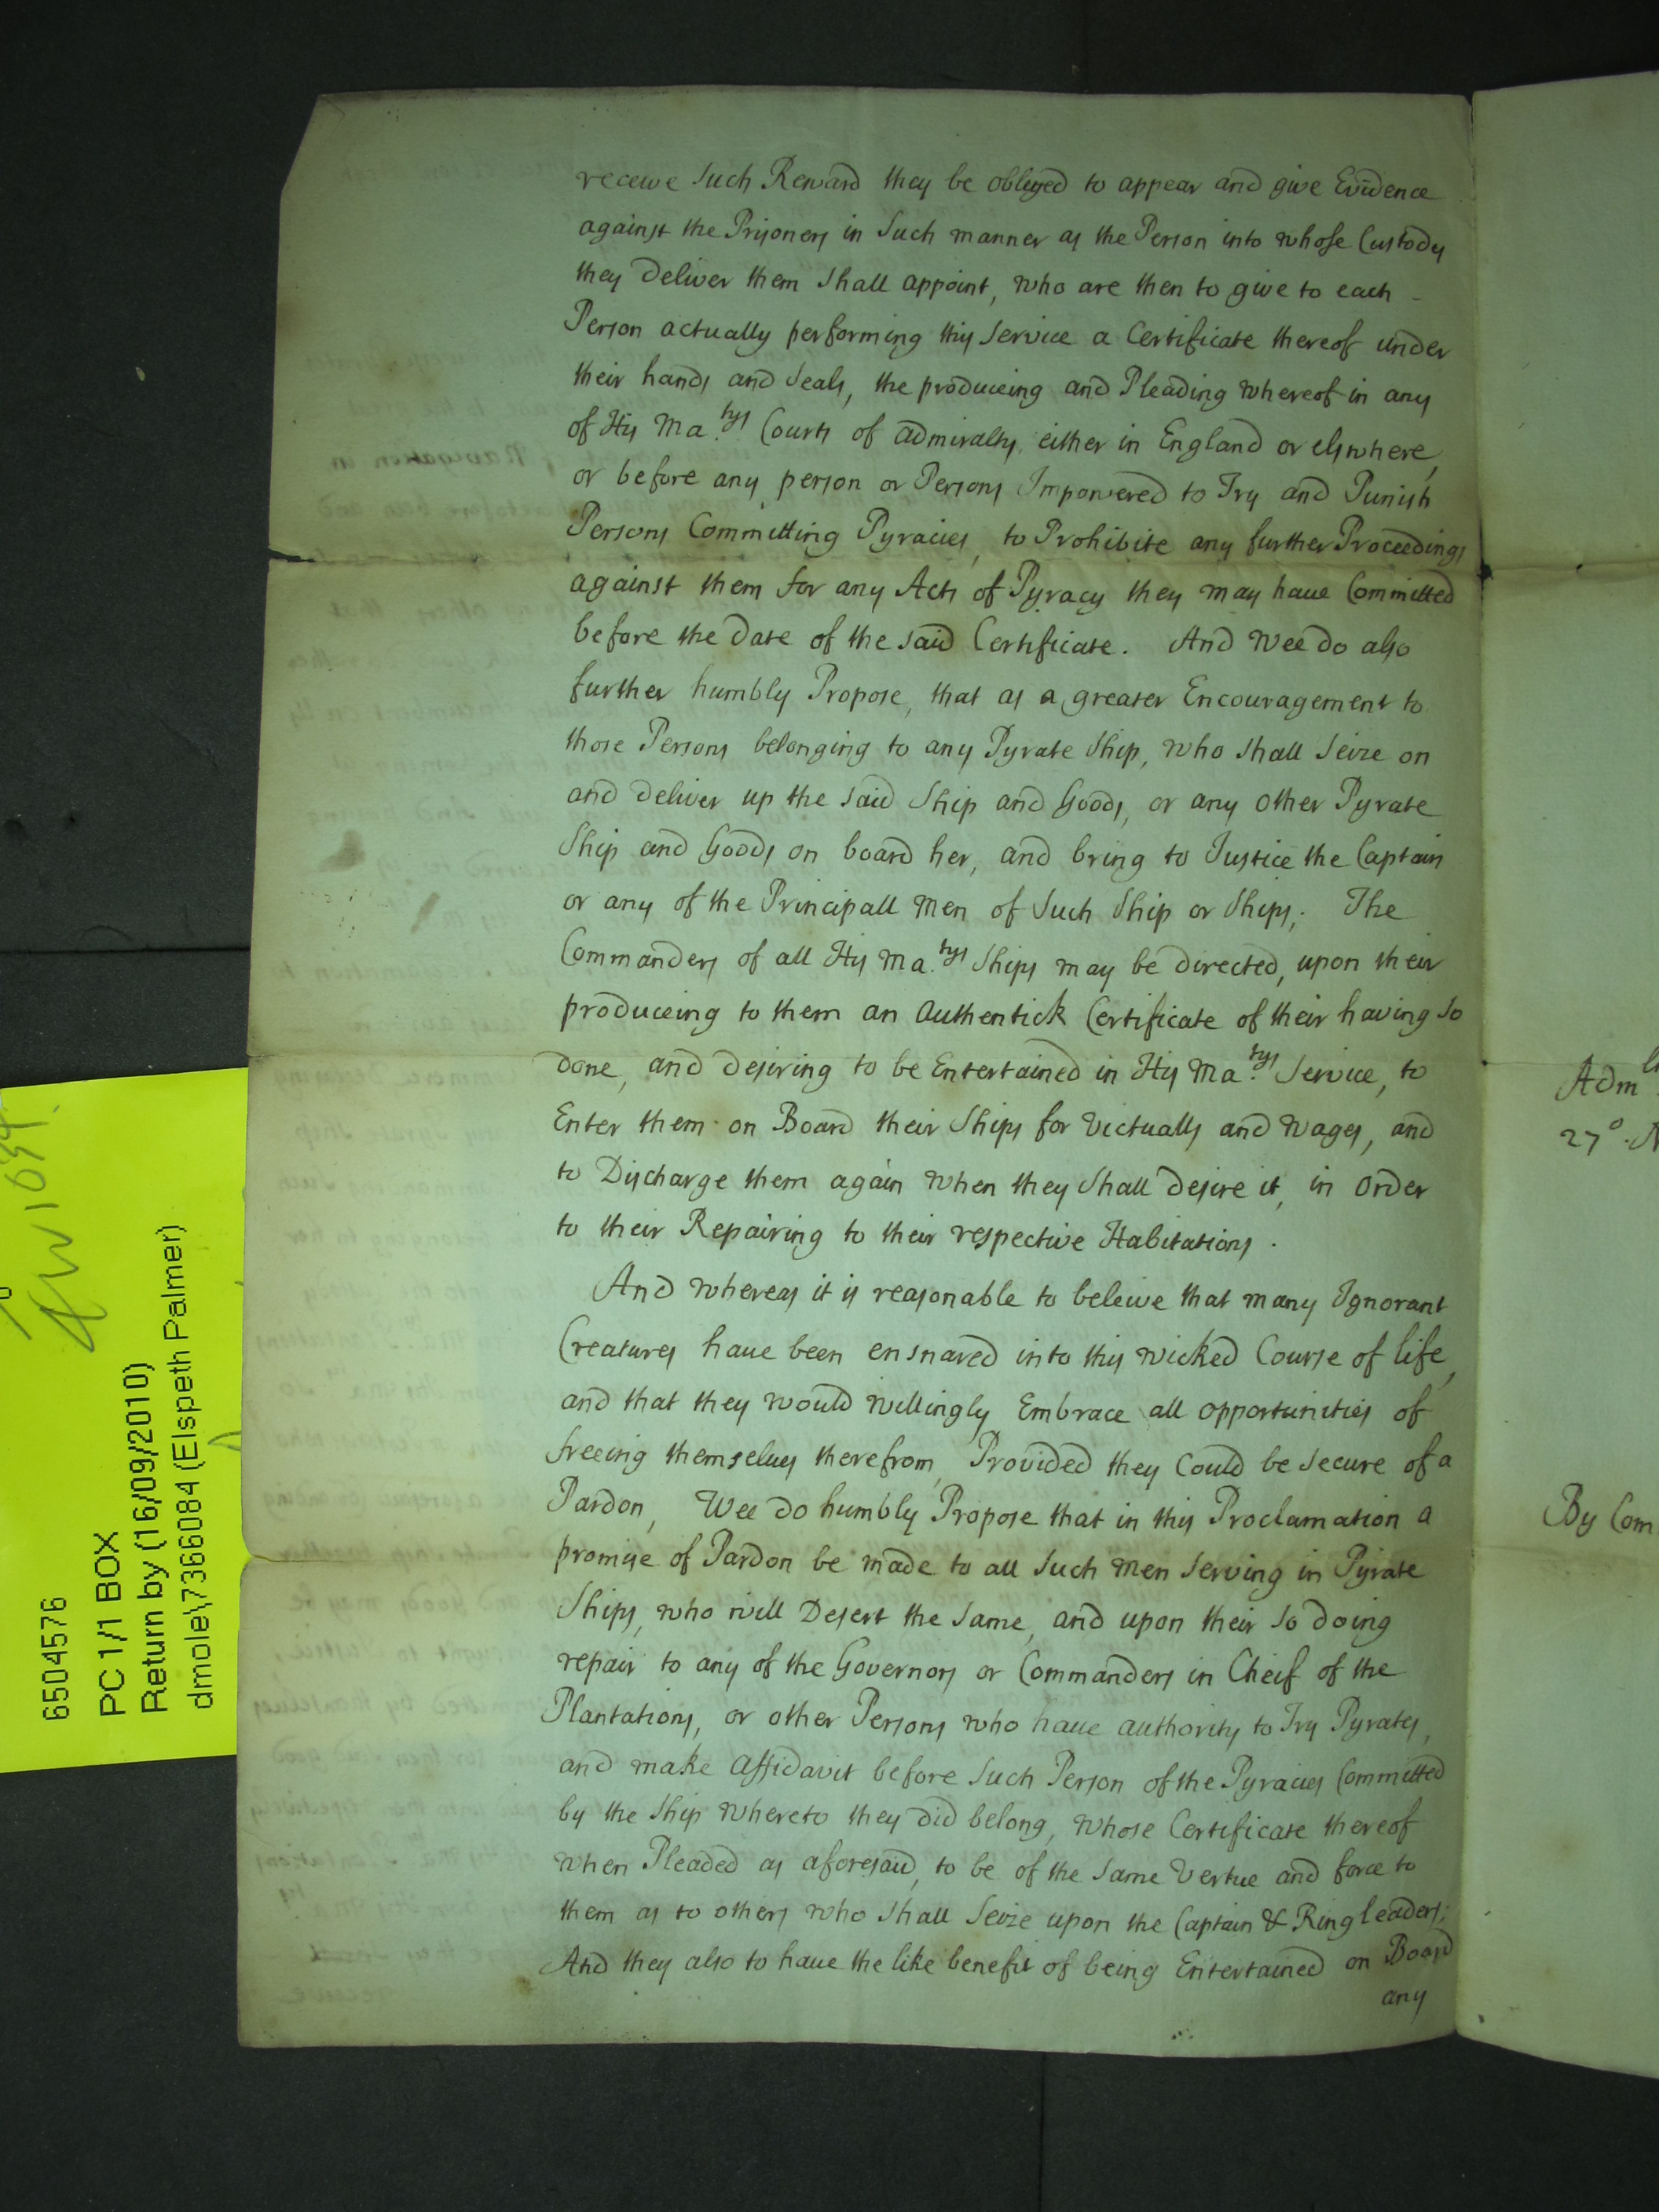 receive Such Reward they be obliged to appear and give Evidence
against the Prisoners in Such manner as the Person into whose Custody
they deliver them shall appoint, who are then to give to each -
Person actually performing this Service a Certificate thereof under
their hands and Seals, the produceing and Pleading whereof in any
of His Ma.tys Courts of admiralty, either in England or elswhere,
or before any person or Persons Impowered to Try and Punish
Persons Committing Pyracies, to Prohibite any further Proceedings
against them for any Acts of Pyracy they may have Committed
before the date of the said Certificate. And Wee do also
further humbly Propose, that as a greater Encouragement to
those Persons belonging to any Pyrate Ship, who shall Seize on
and deliver up the said Ship and Goods, or any other Pyrate
Ship and Goods on board her, and bring to Justice the Captain
or any of the Principall men of Such Ship or Ships; The
Commanders of all His Ma.tys Ships may be directed, upon their
produceing to them an authentick Certificate of their having so
done, and desiring to be Entertained in His Ma.tys Service, to
Enter them on Board their Ships for Victualls and Wages, and
to Discharge them again when they Shall desire it, in order
to their Repairing to their respective Habitations.
And whereas it is reasonable to beleive that many Ignorant
Creatures have been ensnared into this wicked Course of life,
and that they would willingly Embrace all opportunities of
freeing themselues therefrom, Provided they Could be secure of a
Pardon, Wee do humbly Propose that in this Proclamation a
promise of Pardon be made to all Such men Serving in Pyrate
Ships, who will Desert the same, and upon their so doing
repair to any of the Governors or Commanders in Cheif of the
Plantations, or other Persons who haue authority to Try Pyrates,
and make affidavit before Such Person of the Pyracies Committed
by the Ship whereto they did belong, whose Certificate thereof
when Pleaded as aforesaid, to be of the same Vertue and force to
them as to others who shall Seize upon the Captain & Ringleaders;
And they also to haue the like benefit of being Entertained on Board
any
Adm
27º.
By Com
6504576
PC 1/1 BOX
Return by (16/09/2010)
dmole\7366084 (Elspeth Palmer)